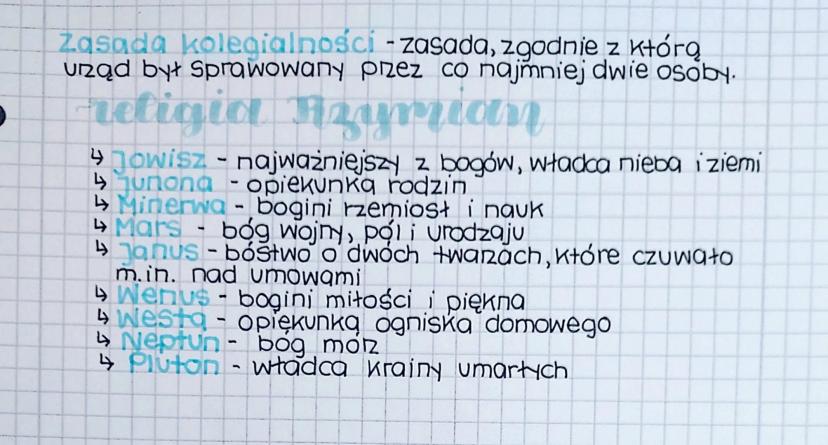 Zasada kolegialności - zasada, zgodnie z którą
urząd był sprawowany przez co najmniej dwie osoby.
religia Rzymian
↳ Jowisz - najważniejszy z bogów, władca nieba i ziemi
↳ Junona - opiekunka rodzin
↳ Minerwa - bogini rzemiosł i nauk
↳ Mars - bóg wojny, pól i urodzaju
↳ Janus - bóstwo o dwóch twarzach, które czuwało
m.in. nad umowami
↳ Wenus - bogini miłości i piękna
↳ Westa - opiekunka ogniska domowego
↳ Neptun - bóg mórz
↳ Pluton - władca krainy umarłych